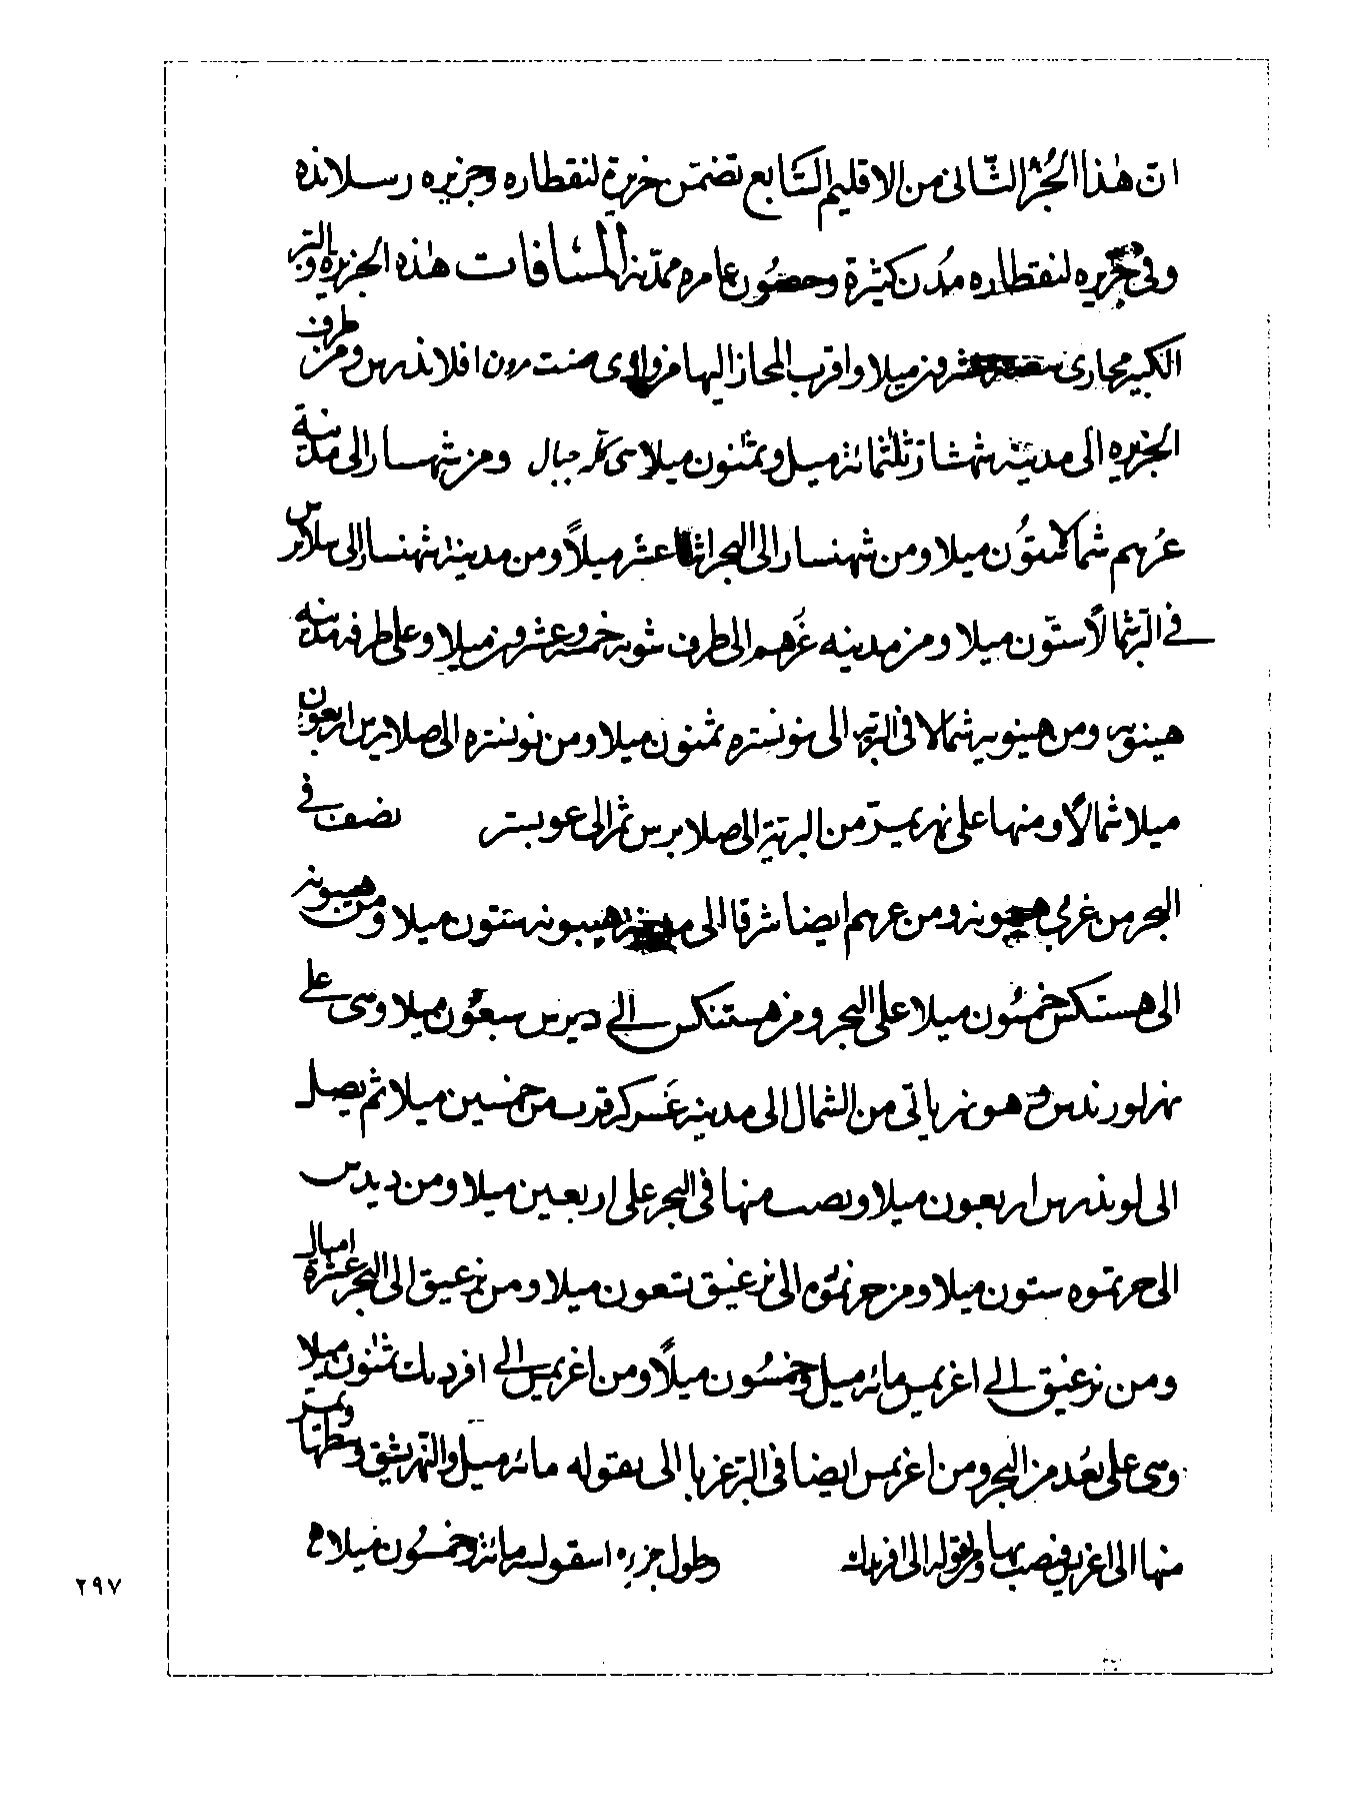 انّ هٰذا الجُزْ الثّانى من الاقليم السّابع تضمّن جزيرة لنقطاره وجزيره رسلانده
وفى جزيره لنقطاره مُدن كثيرة وحصُون عامره ممدّنه المسافات هٰذه الجزيره والبر
الكبير مجارى وعشرون ميلا واقرب المجاز اليها من وادى منت مرون افلاندرس ومن طرف
الجزيره الى مدينة ثلثمائة ميل وثمٰنون ميلا جبال ومن الى مدينة
غرهم شمالا ستّون ميلا ومن شهنسار الى البحر اثنا عشر ميلاً ومن مدينة شهنسار الى سلابرس
في البرّ شمالًا ستّون ميلا ومن مدينه غَرهم الى طرف خمسة وعشرون ميلا وعلى طرفه مدينه
هينويه ومن هينويه شمالا فى البريّه الى نونستره ثمٰنون ميلا ومن نونستره الى صلابرس اربعون
ميلا شمالاً ومنها على نهر يمدّ من البريّة الى صلابرس ثم الى عوبستر نصف في
البحر من غربي ومن غرهم ايضا شرقا الى هيبونه ستون ميلا ومن هيبونه
الى هستنكس خمسُون ميلا على البحر ومن هستنكس الي ديرس سبعُون ميلا وهى على
نهر لورندس وهو نهر ياتى من الشمال الى مدينه قرب من خمسين ميلا ثم يصل
الى لونذرس اربعون ميلا ويصب منها فى البحر على اربعين ميلا ومن ديدس
الى ستون ميلا ومن الى نرغيق تسعون ميلا ومن نرغيق الى البحر عشرة اميال
ومن نرغيق الي اغريمس مائه ميل وخمسُون ميلاً ومن اغريمس الي افرديك ثمٰنون ميلا
وهى على بُعد من البحر ومن اغريمس ايضا فى البر غربا الى نقوله مائه ميل والنّهر يشق وسطها ويمرّ
منها الى اغريمس فيصب بها ومن نقوله الى افرديك وطول جزيره اسقوسيه مائة وخمسُون ميلا
٢٩٧